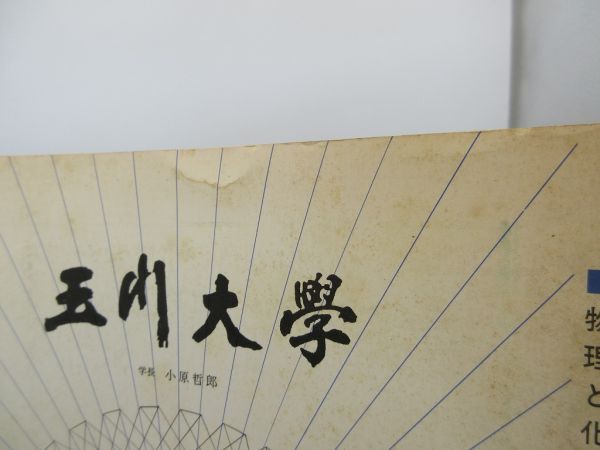 玉川大學
学長 小原哲郎
物理と化